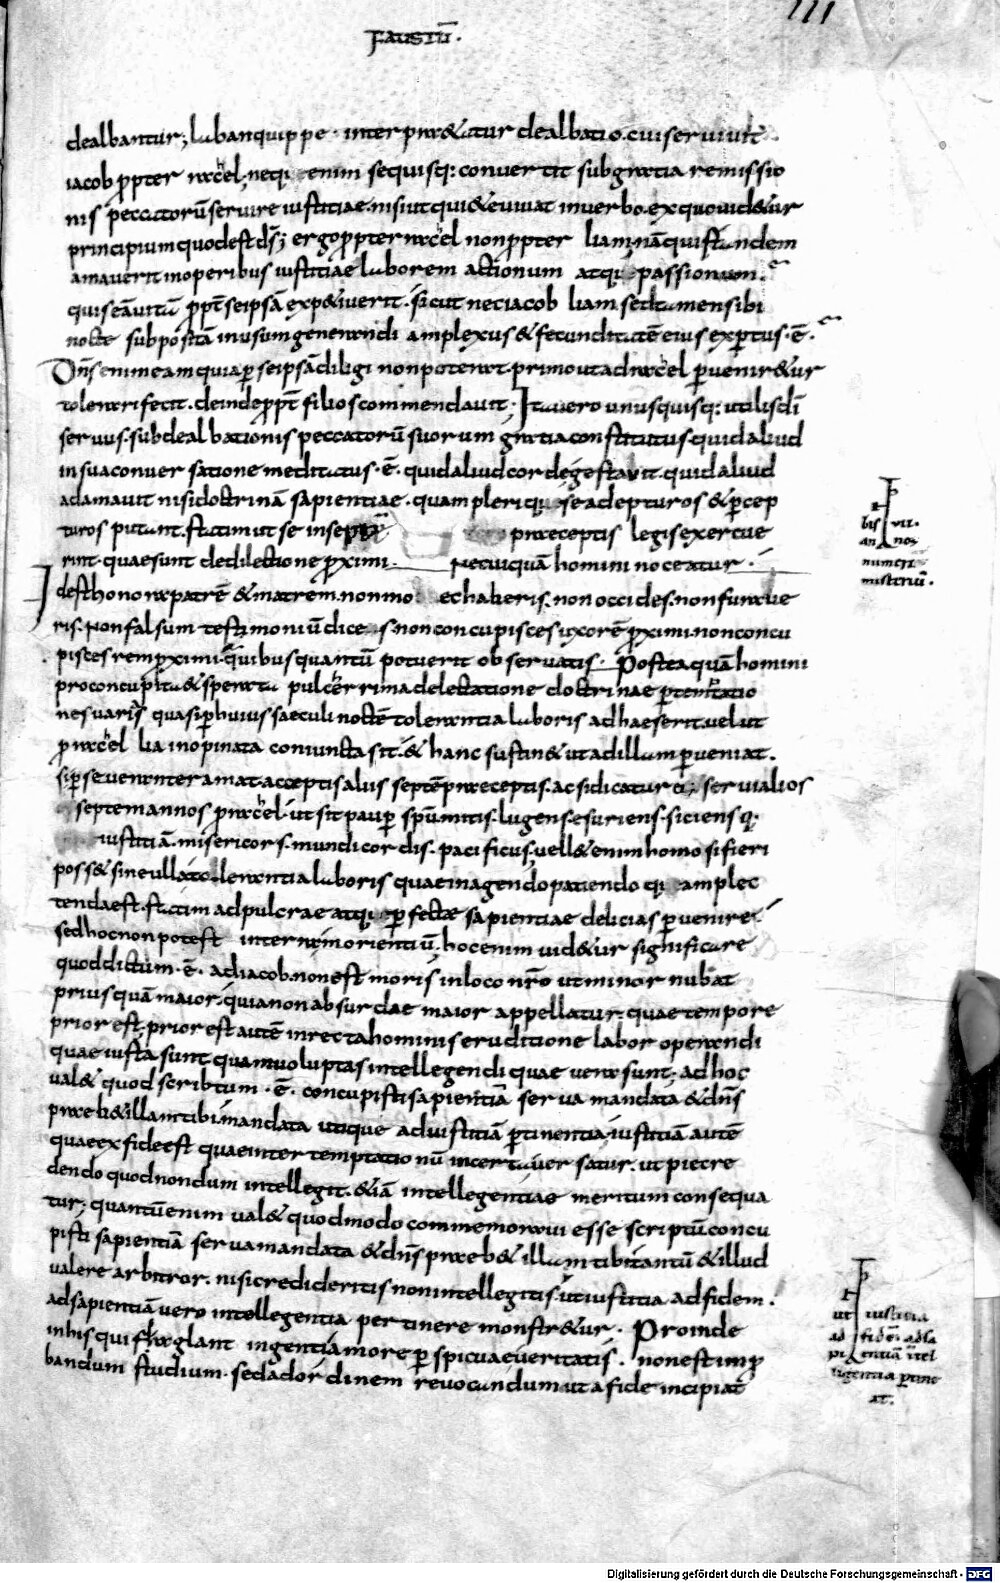 111
FAUSTŪ.
dealbantur; laban quippe interpraetatur dealbatio. cui servivit
iacob ꝓpter rachel, neq; enim se quisq: convertit sub gratia remissio
nis peccatorū servire iustitiae. nisi ut qui&e vivat in verbo. ex quo vid&ur
principium quod est d̄s; ergo ꝓpter rachel non ꝓpter liam. nā quis tandem
amaverit in operibus iustitiae laborem actionum atq; passionum.
quis eā vitā ꝓpt seipsā exp&iverit. sicut nec iacob liam sed tamen sibi
nocte suppositā in usum generandi amplexus & fecunditatē eius exꝑtus. ē.
Dn̄s enim eam quia ꝑ seipsā diligi non poterat. primo ut ad rachel ꝑvenir&ur
tolerari fecit. deinde ꝓpt filios commendavit. Ita vero unusquisq: utilis dī
servus. sub dealbationis peccatorū suorum gratia constitutus. quid aliud
in sua conversatione meditatus. ē. quid aliud corde gestavit. quid aliud
adamavit nisi doctrinā sapientiae. quam pleriq; se adepturos & ꝑcep
turos putant. statim ut se in septē praeceptis legis exercue
rint. quae sunt de dilectione ꝓximi. ne cuiquā homini noceatur.
Id est honora patrē & matrem. non moechaberis. non occides. non furave
ris. non falsum testimoniū dices. non concupisces uxorē ꝓximi. non concu
pisces rem ꝓximi. quibus quantū potuerit observatis. Postea quā homini
pro concupita & sperata pulcherrima delectatione doctrinae ꝑ temptatio
nes varias quasi ꝑ huius saeculi noctē tolerantia laboris adhaeserit. velut
ꝓ rachel lia inopinata coniuncta sit. & hanc sustin& ut ad illam ꝑveniat.
si ꝑseveranter amat. acceptis aliis septē praeceptis. ac si dicatur ei, servi alios
septem annos ꝓ rachel. ut sit pauꝑ spū. mitis. lugens. esuriens. siciens q;
iustitiā. misericors. mundicordis. pacificus. vell& enim homo si fieri
poss& sine ulla tolerantia laboris quae in agendo patiendo q; amplec
tenda est. statim ad pulcrae atq; ꝑfectae sapientiae delicias ꝑvenire
sed hoc non potest in terra morientiū. hoc enim vid&ur significare
quod dictum. ē. ad iacob. non est moris in loco nr̄o ut minor nubat
priusquā maior. quia non absurdae maior appellatur. quae tempore
prior est. prior est autē in recta hominis eruditione labor operandi
quae iusta sunt. quam voluptas intellegendi quae vera sunt. ad hoc
val& quod scribtum. ē. concupisti sapientiā serva mandata & dn̄s
praeb& illam tibi. mandata utique ad iustitiā ꝑtinentia. iustitiā autē
quae ex fide est quae inter temptationū incerta versatur. ut pie cre
dendo quod nondum intellegit. &iā intellegentiae meritum consequa
tur; quantū enim val& quod modo commemoravi esse scriptū concu
pisti sapientiā serva mandata & dn̄s praeb& illam tibi. tantū & illud
valere arbitror. nisi credideritis non intellegitis. ut iustitia ad fidem.
ad sapientiā vero intellegentia pertinere monstr&ur. Proinde
in his qui flaglant ingenti amore ꝑspicuae veritatis. non est imꝓ
bandum studium. sed ad ordinem revocandum ut a fide incipiat
bis vii.
annos
numeri
misteriū.
ut iustitia
ad fidē. ad sa
pientiā intel
ligentia ꝑtine
at.
Digitalisierung gefördert durch die Deutsche Forschungsgemeinschaft - DFG